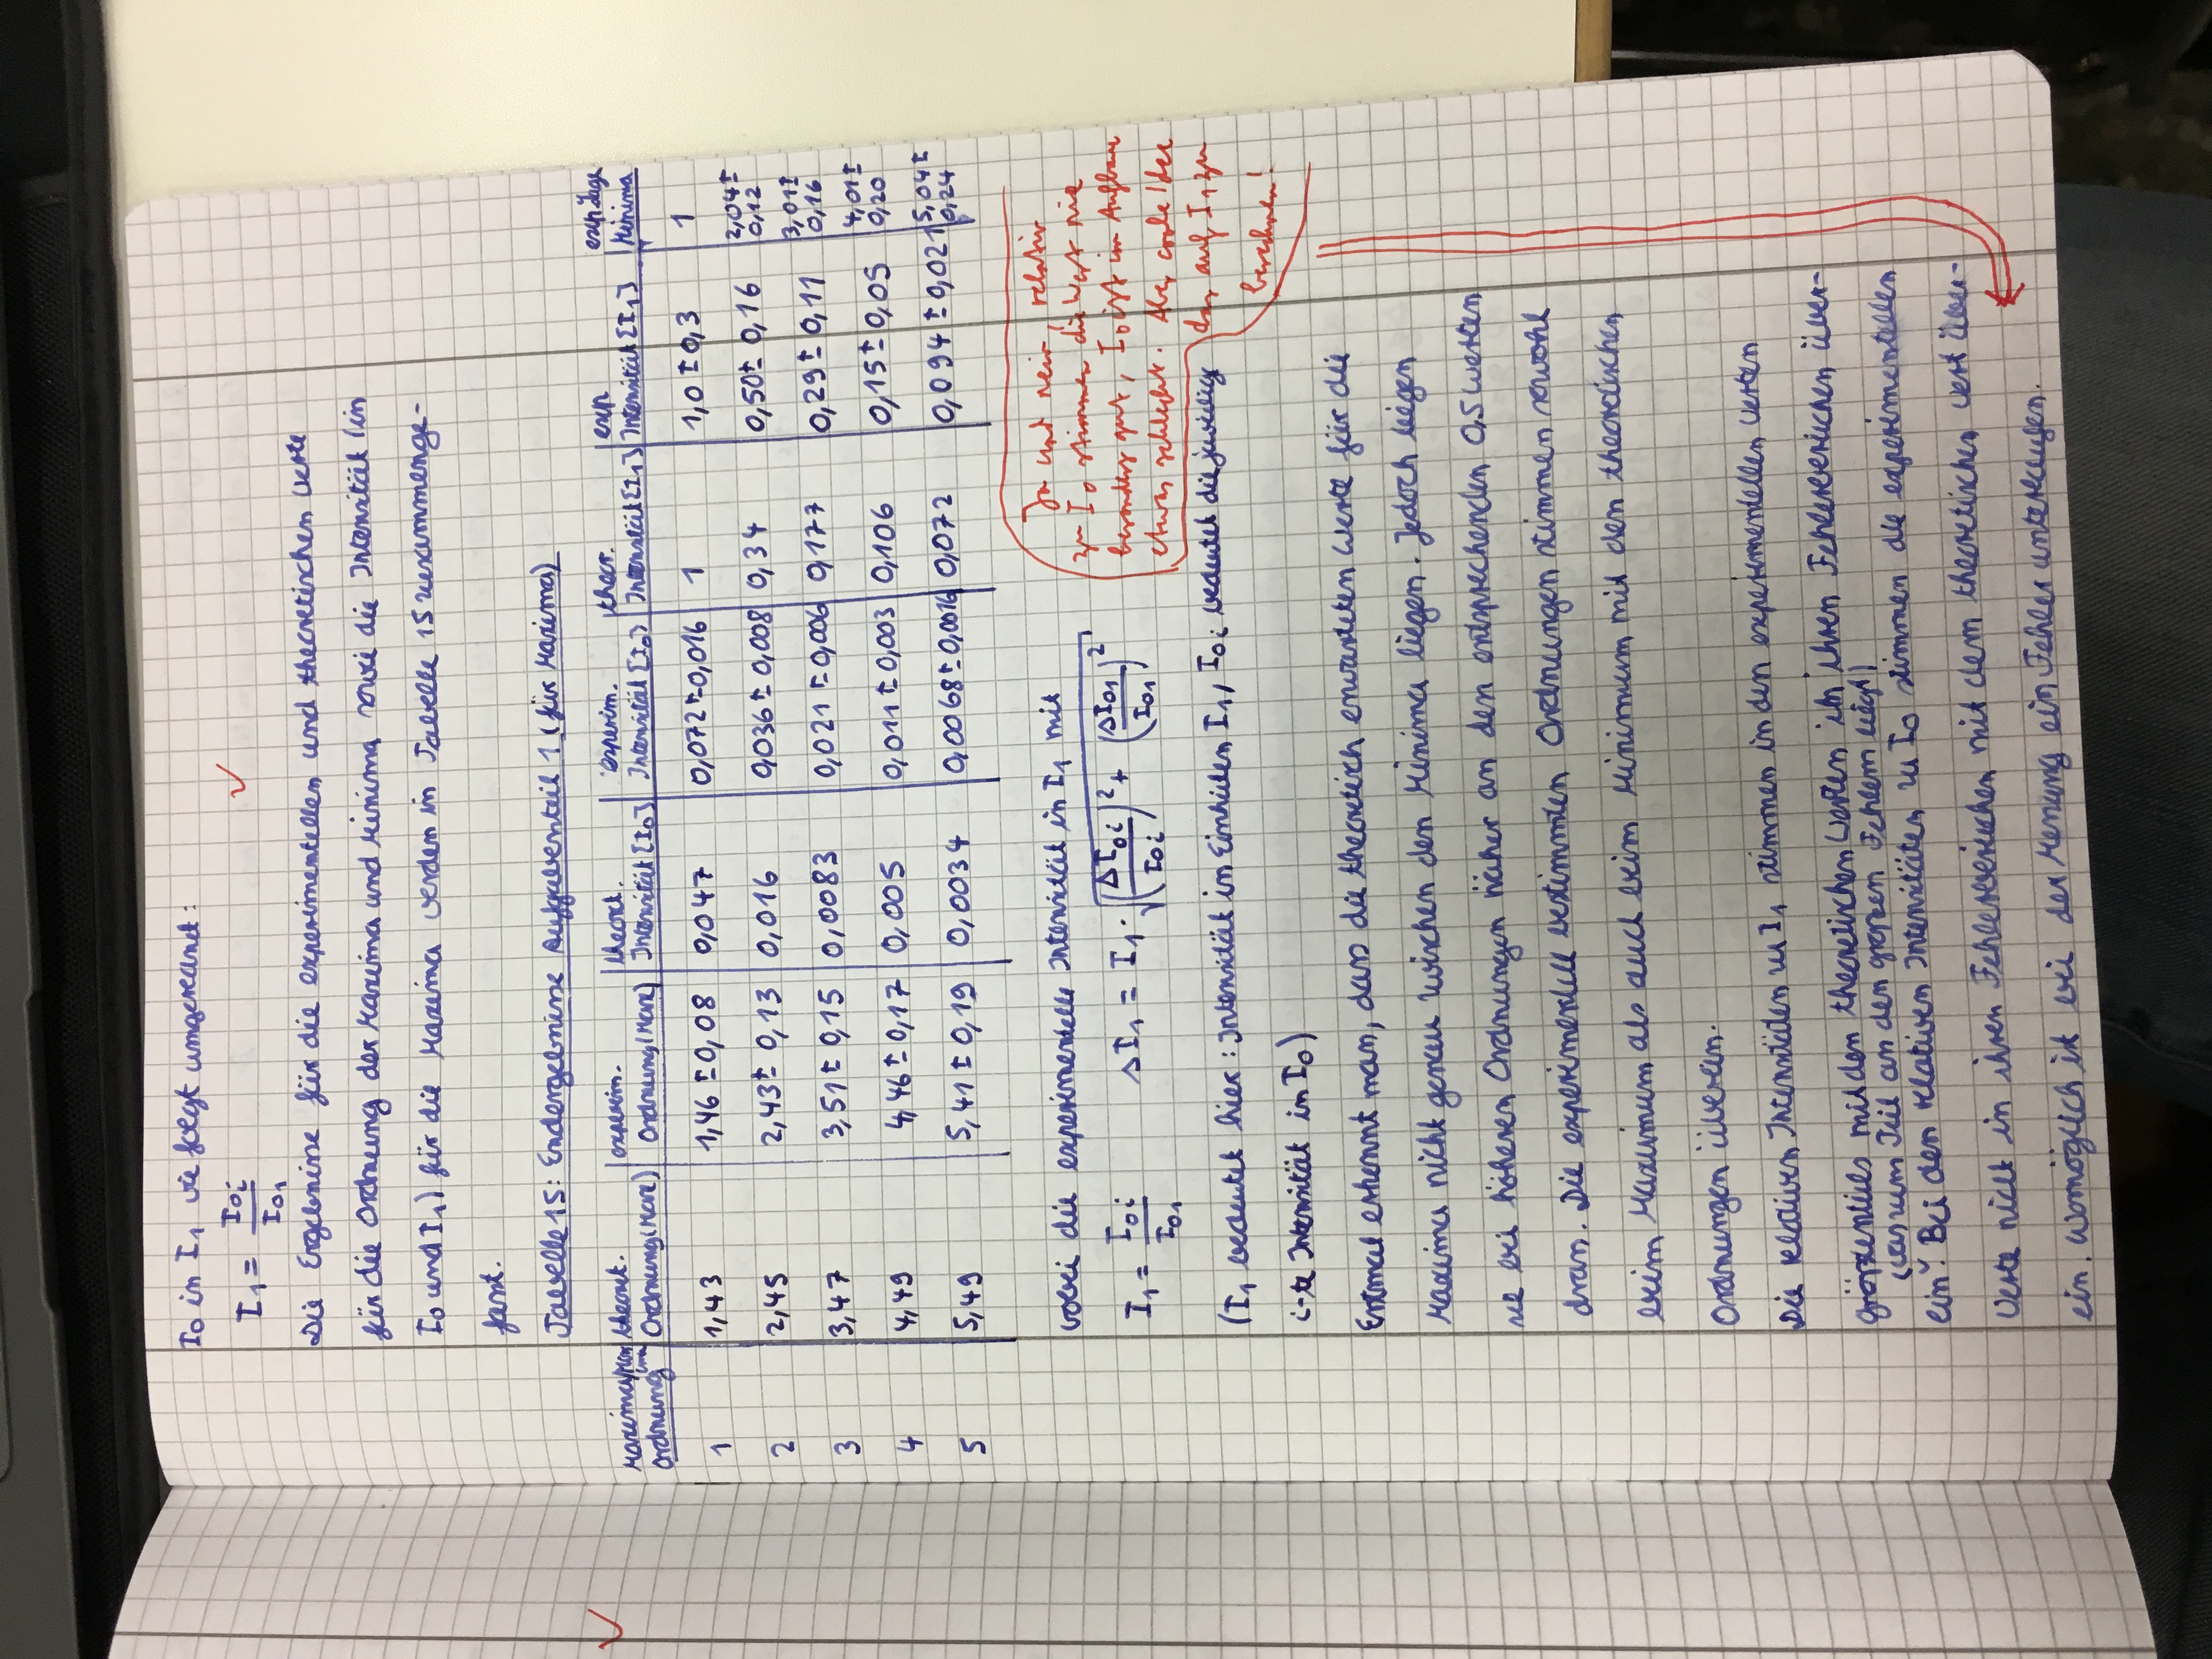 I₀ in I₁ wie folgt umgerechnet:
I₁ = I₀ᵢ / I₀₁
Die Ergebnisse für die experimentellen und theoretischen Werte
für die Ordnung der Maxima und Minima sowie die Intensität (in
I₀ und I₁) für die Maxima werden in Tabelle 15 zusammenge-
fasst.
Tabelle 15: Endergebnisse Aufgabenteil 1 (für Maxima)
Maxima/Minima Ordnung | theoret. Ordnung (Max) | experim. Ordnung (Max) | theoret. Intensität [I₀] | experim. Intensität [I₀] | theor. Intensität [I₁] | exp Intensität [I₁] | exp. Lage Minima
1 | 1,43 | 1,46 ± 0,08 | 0,047 | 0,072 ± 0,016 | 1 | 1,0 ± 0,3 | 1
2 | 2,45 | 2,43 ± 0,13 | 0,016 | 0,036 ± 0,008 | 0,34 | 0,50 ± 0,16 | 2,04 ± 0,12
3 | 3,47 | 3,51 ± 0,15 | 0,0083 | 0,021 ± 0,006 | 0,177 | 0,29 ± 0,11 | 3,01 ± 0,16
4 | 4,49 | 4,46 ± 0,17 | 0,005 | 0,011 ± 0,003 | 0,106 | 0,15 ± 0,05 | 4,01 ± 0,20
5 | 5,49 | 5,41 ± 0,19 | 0,0034 | 0,0068 ± 0,0016 | 0,072 | 0,094 ± 0,021 | 5,04 ± 0,24
wobei die experimentelle Intensität in I₁ mit
I₁ = I₀ᵢ / I₀₁ ΔI₁ = I₁ · √((ΔI₀ᵢ / I₀ᵢ)² + (ΔI₀₁ / I₀₁)²)
(I₁ bedeutet hier: Intensität in Einheiten I₁, I₀ᵢ bedeutet die jeweilige
i-te Intensität in I₀)
Ja und nein, relativ
zu I₀ stimmen die Werte nie
besonders gut, I₀ ist im Aufbau
etwas schlecht. Aber coole Idee
das auf I₁ zu
berechnen!
Erstmal erkennt man, dass die theoretisch erwarteten Werte für die
Maxima nicht genau zwischen den Minima liegen. Jedoch liegen
sie bei höheren Ordnungen näher an den entsprechenden 0,5 Werten
dran. Die experimentell bestimmten Ordnungen stimmen sowohl
beim Maximum als auch beim Minimum mit den theoretischen
Ordnungen überein.
Die relativen Intensitäten zu I₁ stimmen in den experimentellen Werten
größtenteils mit den theoretischen Werten in ihren Fehlerbereichen über-
(was zum Teil an den großen Fehlern liegt)
ein. Bei den relativen Intensitäten zu I₀ stimmen die experimentellen
Werte nicht in ihren Fehlerbereichen mit dem theoretischen Wert über-
ein. Womöglich ist bei der Messung ein Fehler unterlaufen.